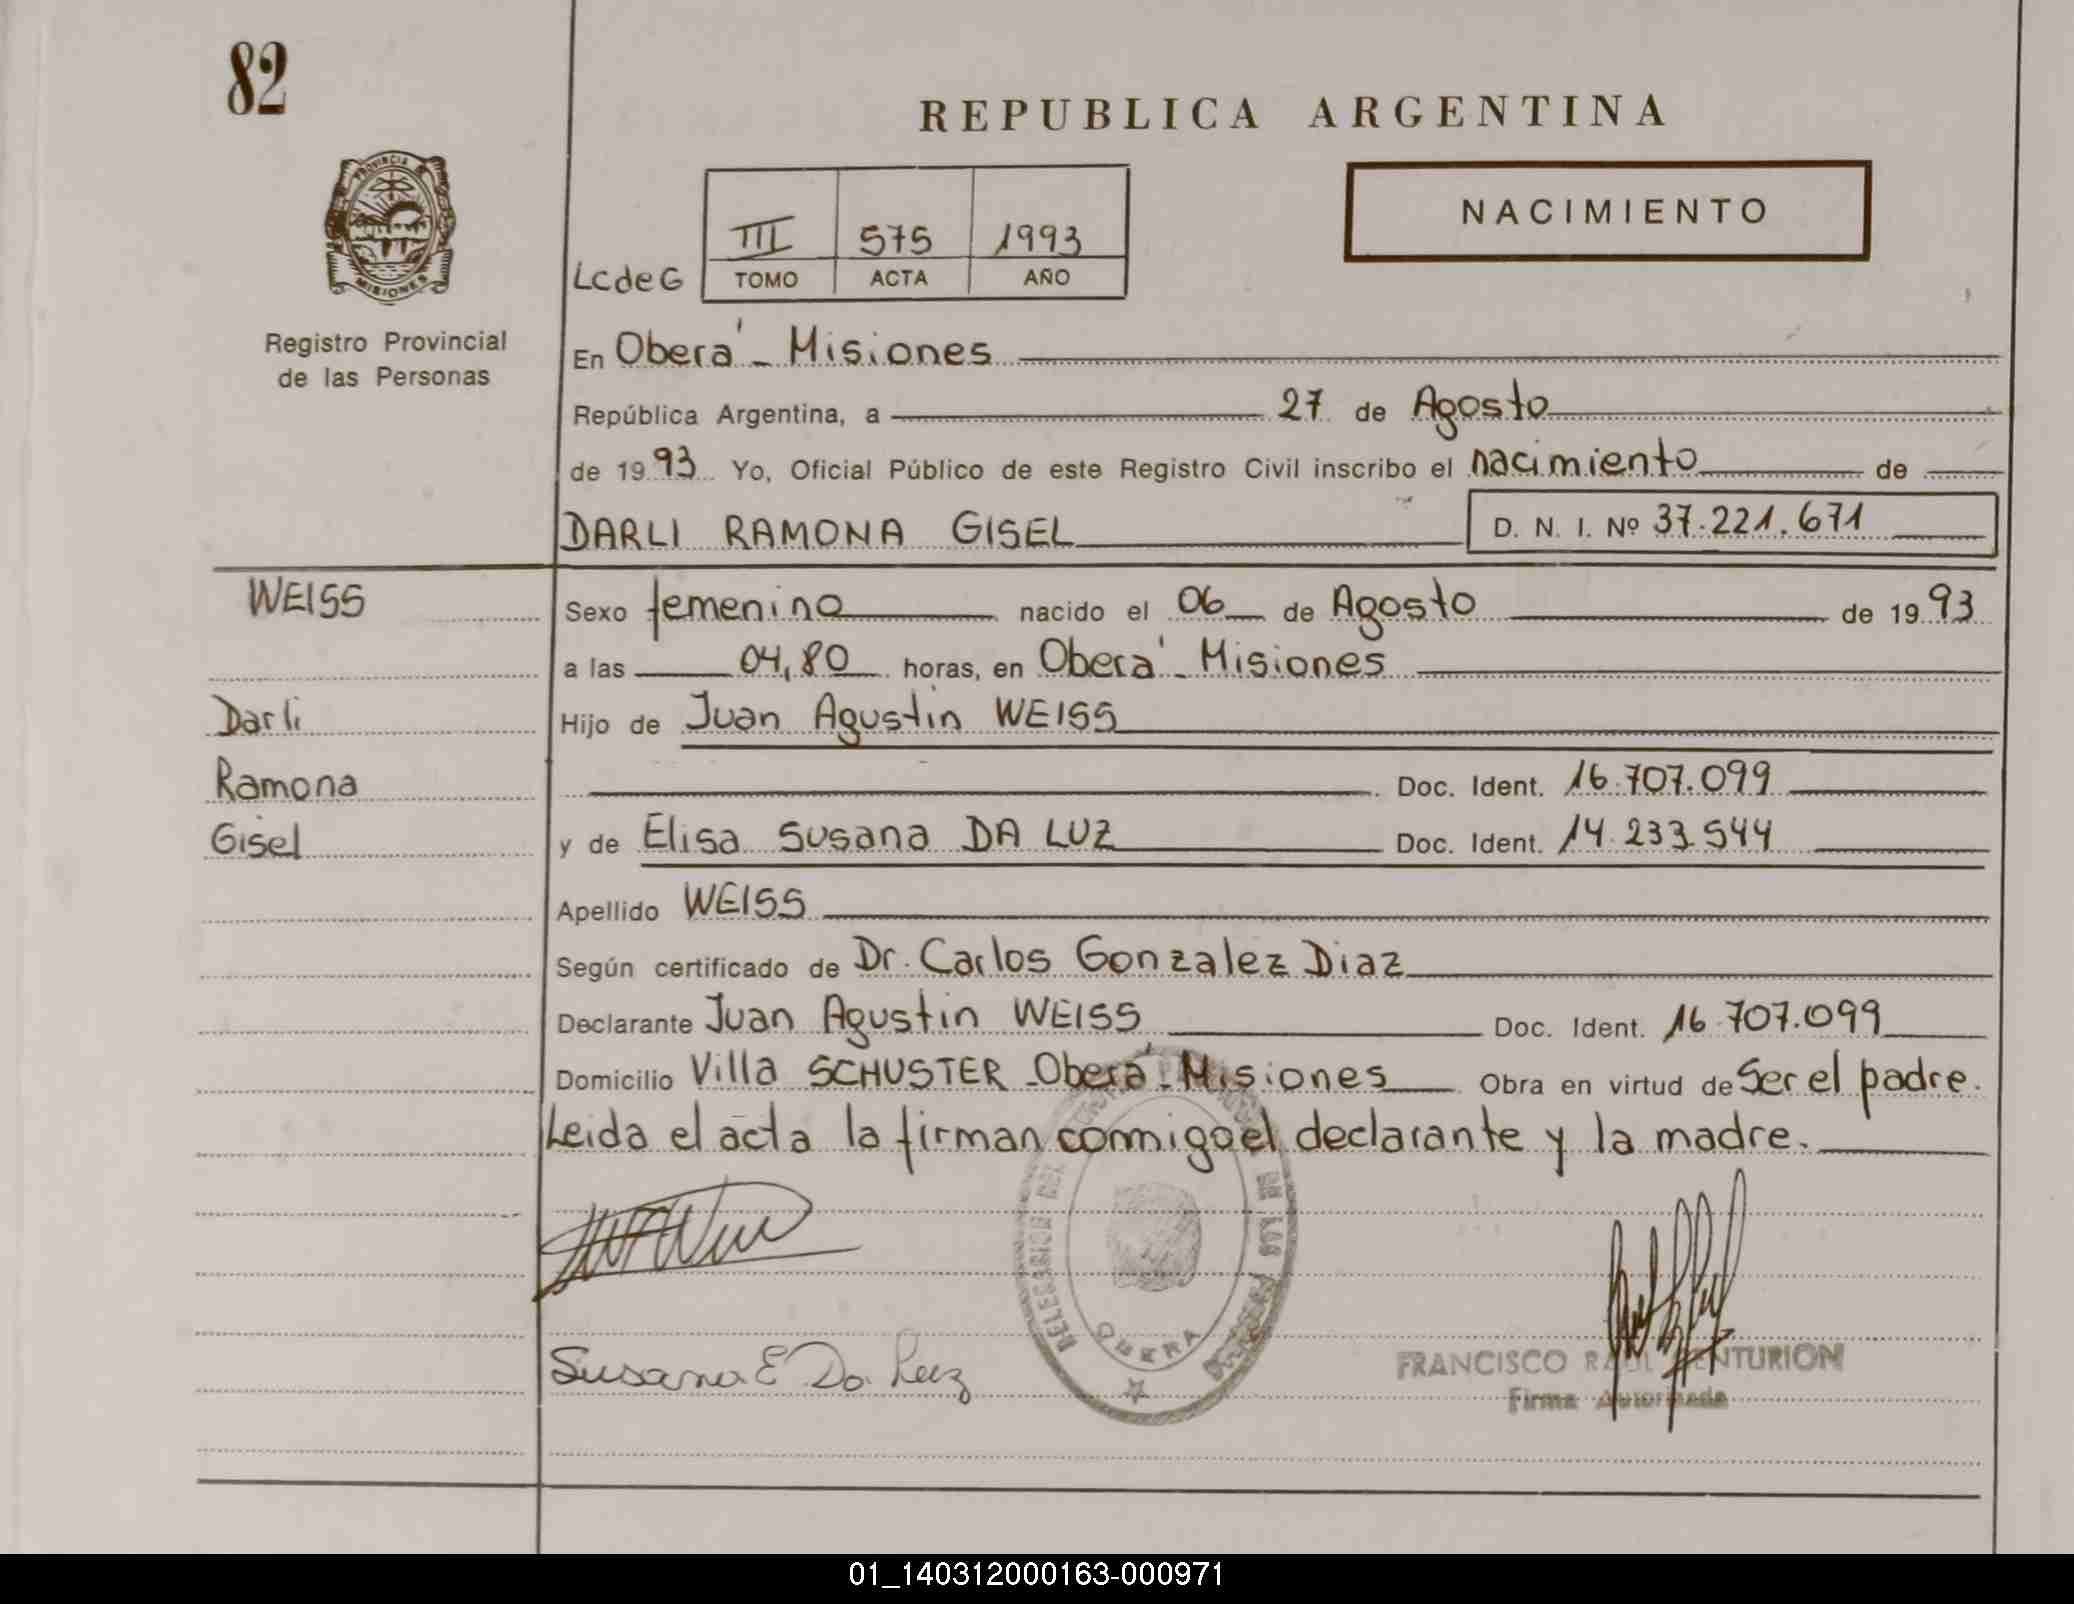 82
REPUBLICA ARGENTINA
PROVINCIA
MISIONES
Registro Provincial
de las Personas
NACIMIENTO
LcdeG
III 575 1993
TOMO ACTA AÑO
En Oberá - Misiones
República Argentina, a 27 de Agosto
de 1993 Yo, Oficial Público de este Registro Civil inscribo el nacimiento de
DARLI RAMONA GISEL D. N. I. Nº 37.221.671
WEISS
Sexo femenino nacido el 06 de Agosto de 1993
a las 04,80 horas, en Oberá - Misiones
Darli
Hijo de Juan Agustin WEISS
Ramona
Doc. Ident. 16.707.099
Gisel
y de Elisa Susana DA LUZ Doc. Ident. 14.233.544
Apellido WEISS
Según certificado de Dr. Carlos Gonzalez Diaz
Declarante Juan Agustin WEISS Doc. Ident. 16.707.099
Domicilio Villa SCHUSTER - Oberá - Misiones Obra en virtud de Ser el padre.
Leida el acta la firman conmigo el declarante y la madre.
DELEGACION DEL DE LAS
OBERA
Susana E Da Luz
FRANCISCO RAUL CENTURION
Firma Autorizada
01_140312000163-000971